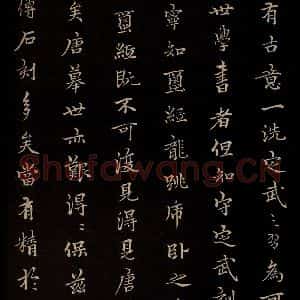 有古意一洗定武之習為可
世學書者但知守定武刻
寧知蠒紙龍跳虎臥之
蠒紙既不可復見得見唐
矣唐摹世亦難得得保茲
傳石刻多矣當有精於
Shufawang.CN